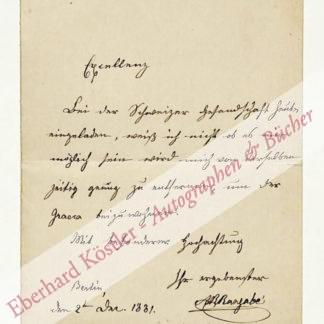 Excellenz
Bei der Schweizer Gesandschaft heute
eingeladen, weiß ich nicht ob es mir
möglich sein wird mich von derselben
zeitig genug zu entfernen um der
Graeca beizuwohnen.
Mit besonderer Hochachtung
Ihr ergebenster
Berlin
den 2ten Dec. 1881.
ARRangabé
Eberhard Köstler - Autographen & Bücher